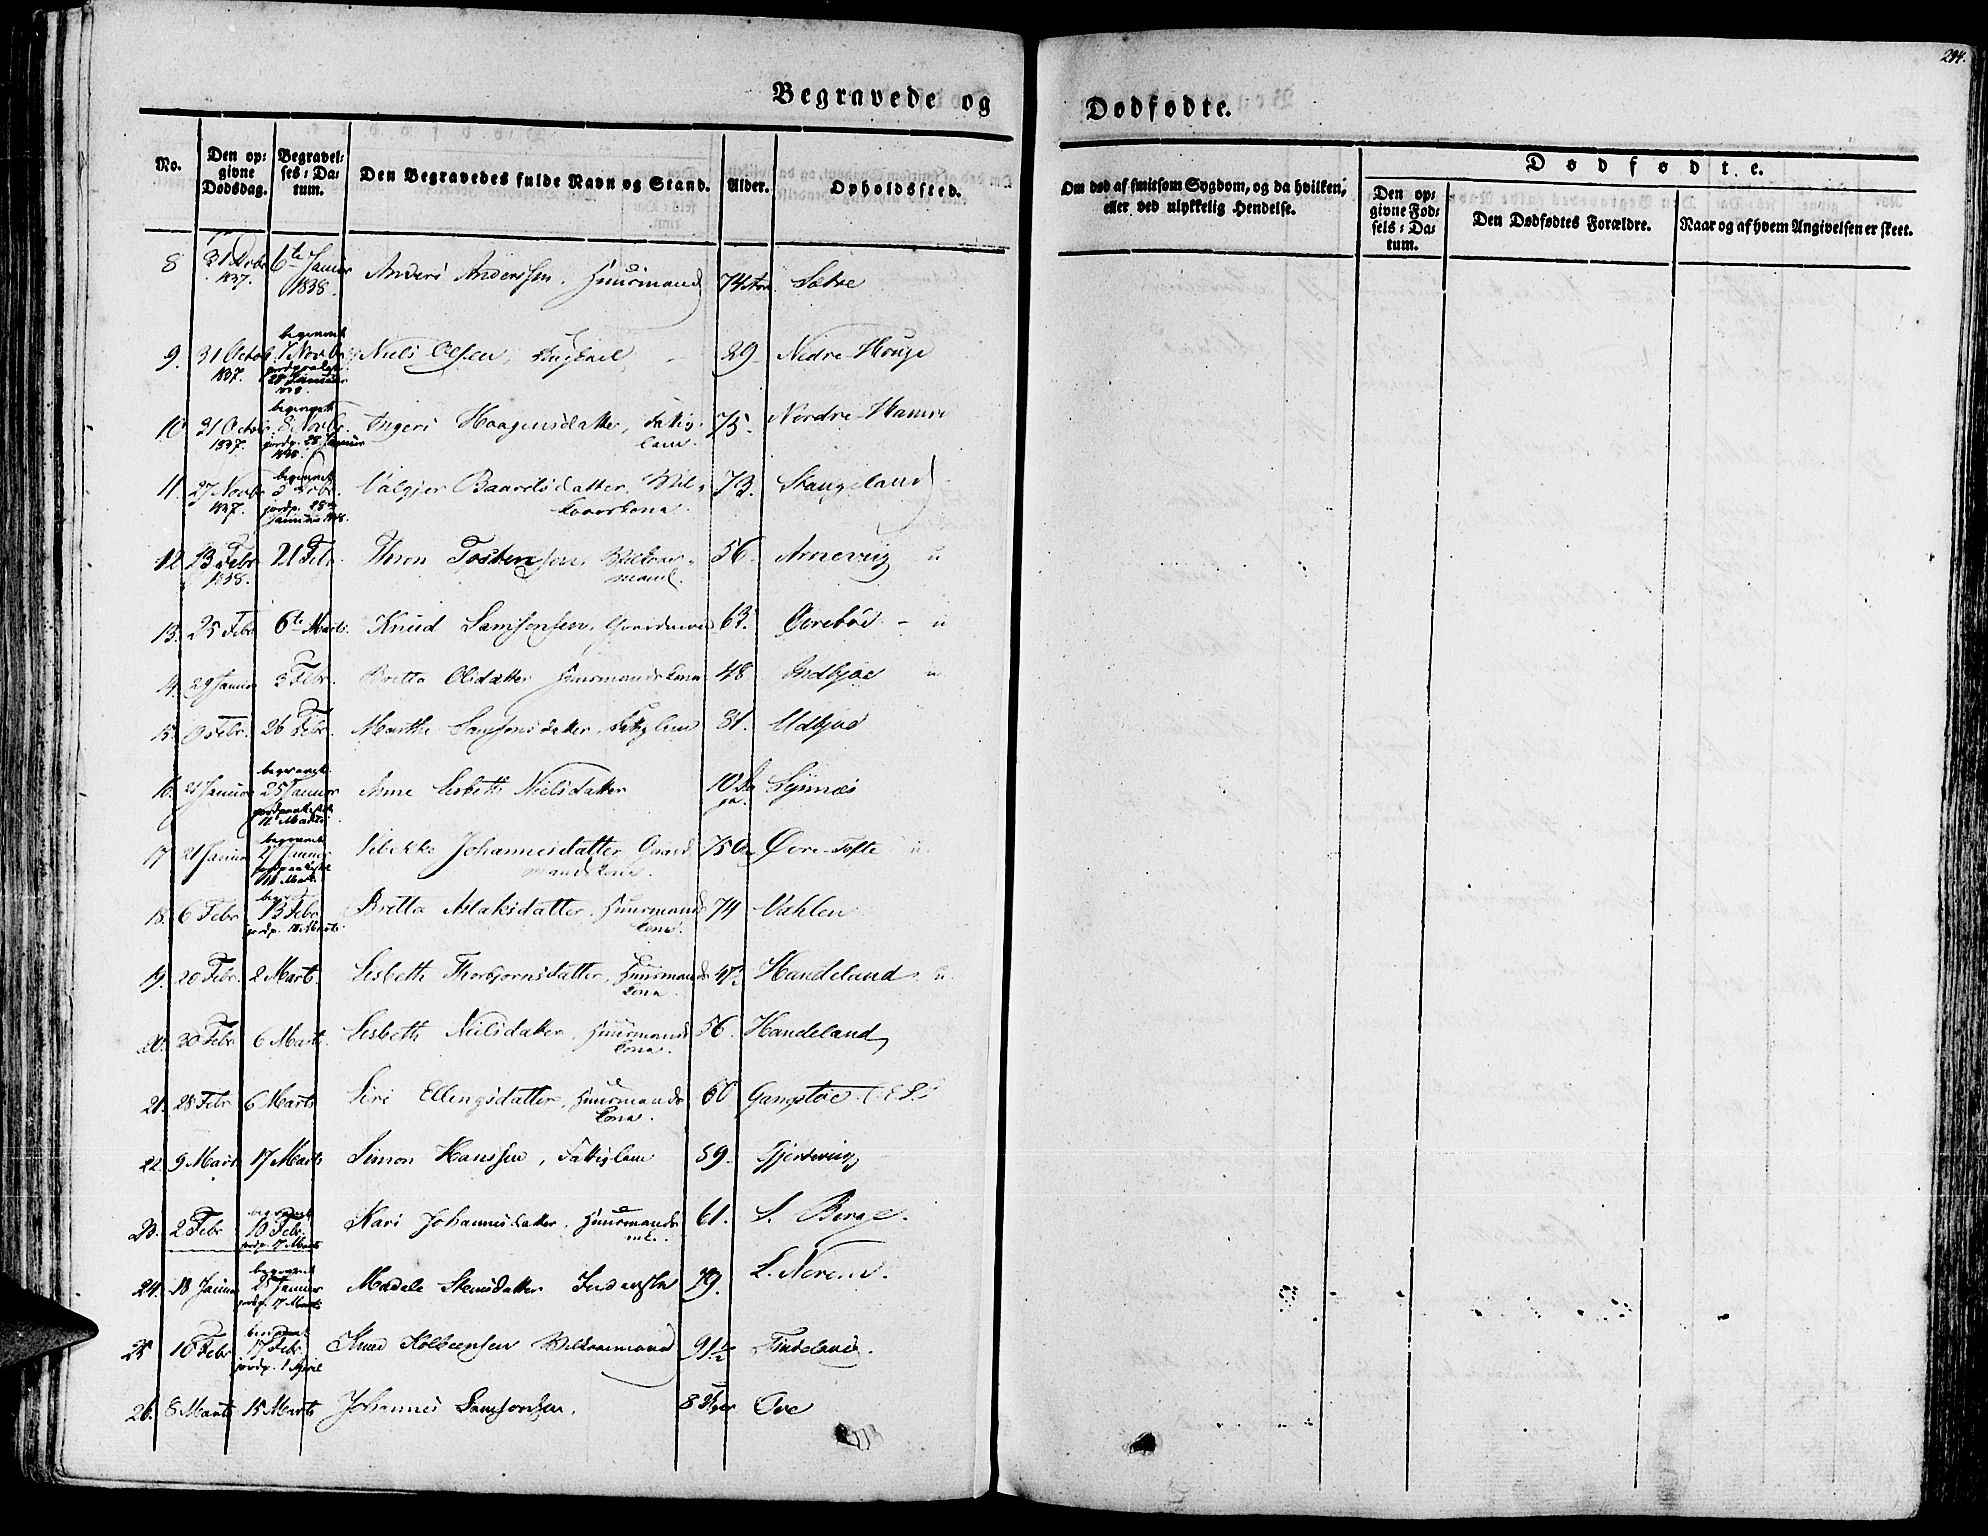 294.
Begravede og
Dødfødte.
No.
Den op-
givne
Dødsdag.
Begravel-
ses-Da-
tum.
Den Begravedes fulde Navn og Stand.
Alder.
Opholdssted.
Om død af smitsom Sygdom, og da hvilken,
eller ved ulykkelig Hendelse.
Dødfødte.
Den op-
givne Fød-
sels-Da-
tum.
Den Dødfødtes Forældre.
Naar og af hvem Angivelsen er skeet.
8 31 Dcbr 1837. 6te Januar 1838. Anders Anderssen. Huusmand 74 Sætre
9. 31 Octob 1837. begravet 7 Novbr. 28 Januar Niels Olsen, 89. Nedre-Houge
10 31 Octobr 1837. begravet 8 Novbr. jordp. 28 Januar Ingeri Haagensdatter, Fattig-
lem 75. Nordre-Hamre
11. 27 Novb 1837. begravet jordp. 28de Januar 1838. Valgjer Baardsdatter. Vil-
kaarskona. 73. Stangeland
12 13 Febr 1838. 21 Febr. Thron Tostensen, Vilkaar-
mand. 56. Arnevig
13. 25 Febr 6te Marts. Knud Samsonsen, Gaardmand 63. Øvrebøe
14. 29 Januar 3 Febr. Britta Olsdatter Huusmandskona 48 Indbjoe
15. 9 Febr. 26 Febr. Marthe Samsonsdatter, Fattiglem 81. Udbjoe
16. 21 Januar begravet 25 Januar jordpaakastet 16 Marts Anne Lisbeth Nielsdatter 10 Lynnæs
17 21 Januar begravet 27 Januar jordpaakastet 16 Marts Sibekke Johannesdatter Gaard-
mandskone. 75 Øvre-Tofte
18. 6 Febr begr. 13 Febr jordp. 16 Marts Britta Aslaksdatter. Huusmands
kona. 74 Vahlen
19. 20 Febr. 2 Marts. Lisbeth Thorbjornsdatter, Huusmands
kona. 47½ Handeland
20. 20 Febr 6 Marts. Lisbeth Nielsdatter, Huusmands
kona. 56. Handeland
21. 28 Febr 6 Marts Siri Ellingsdatter, Huusmands
kona. 60 Gangstøe
22 9 Marts 17 Marts Simon Hanssen, Fattiglem 89. Gjerdevig
23. 2 Febr begravet 10 Febr. jordp. 17 Marts Kari Johannesdatter, Huusmands
enk. 61. S. Berge.
24. 18 Januar begravet 25 Januar jordp. 17 Marts Madale Steinsdatter 79. L. Nerem.
25 10 Febr begravet 17 Febr. jordp. 1 April Knud Kolbeensen Vilkaarmand 91½ Tindeland.
26. 8 Marts 15 Marts Johannes Samsonsen. 8 Uger Øve